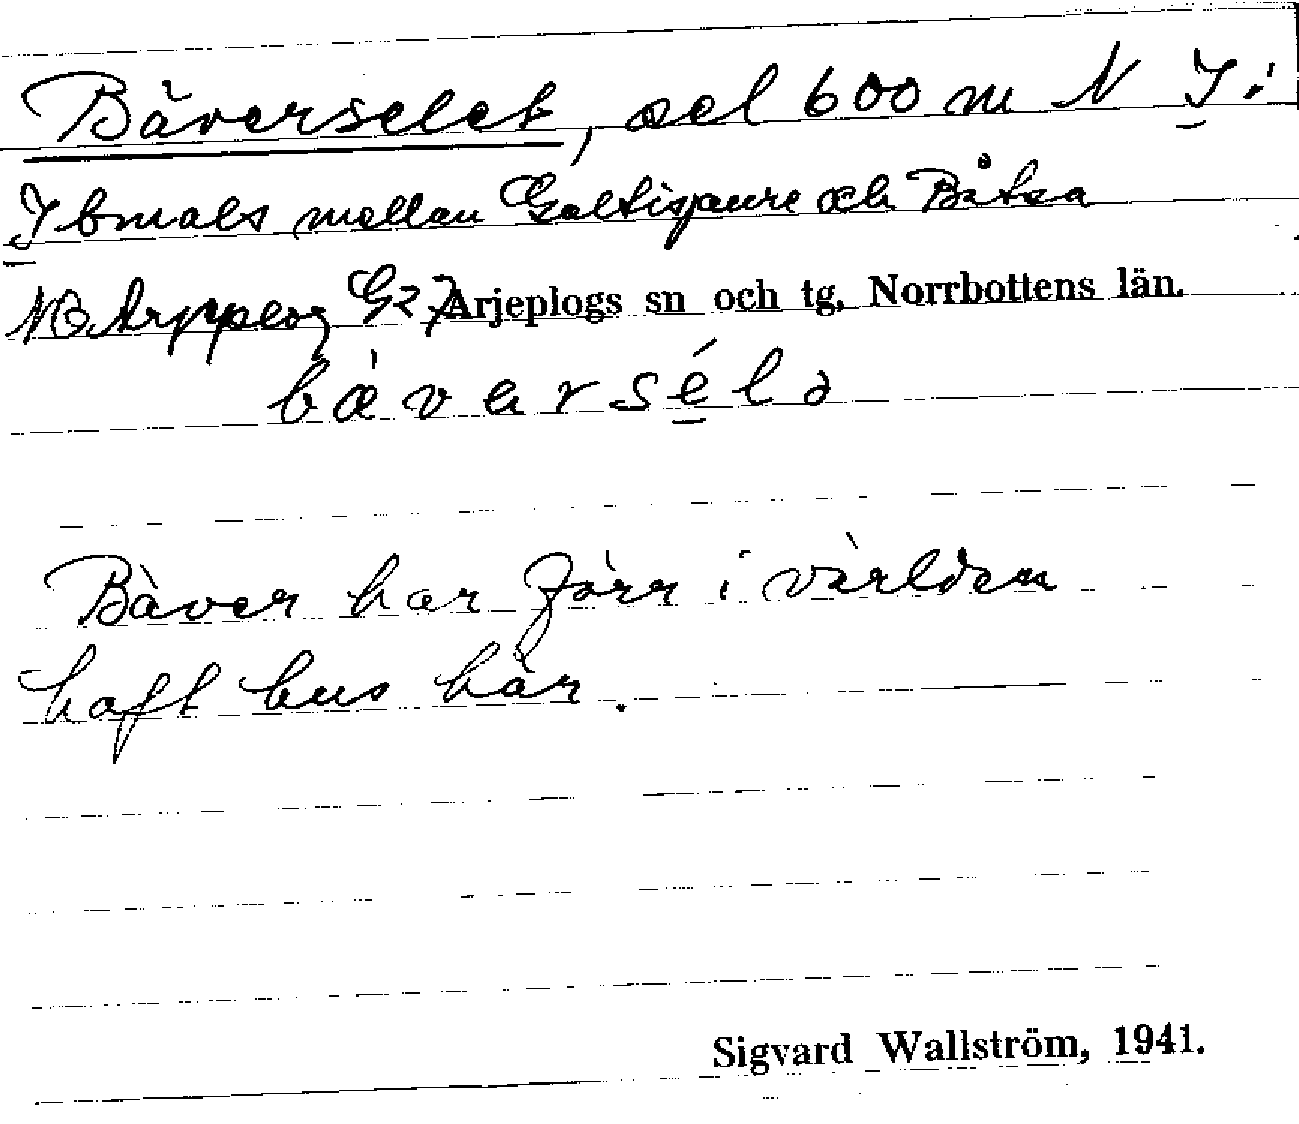 Bäverselet, sel 600 m N I i
Ibmals mellan Galtisjaure och Båtsa
NO Arjeplog G27 Arjeplogs sn och tg, Norrbottens län.
bǽvarséla
Bäver har förr i världen
haft hus här.
Sigvard Wallström, 1941.